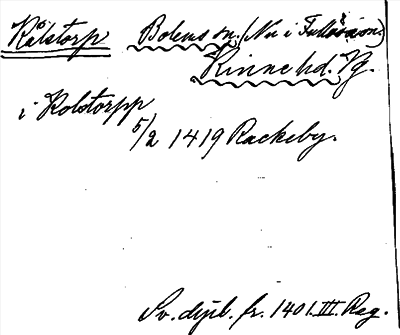 Kålstorp Bolums sn. (Nu i Fullösa sn.)
Kinne hd. Vg.
i Kolstorpp
5/2 1419 Rackeby.
Sv. dipl. fr. 1401. III. Reg.